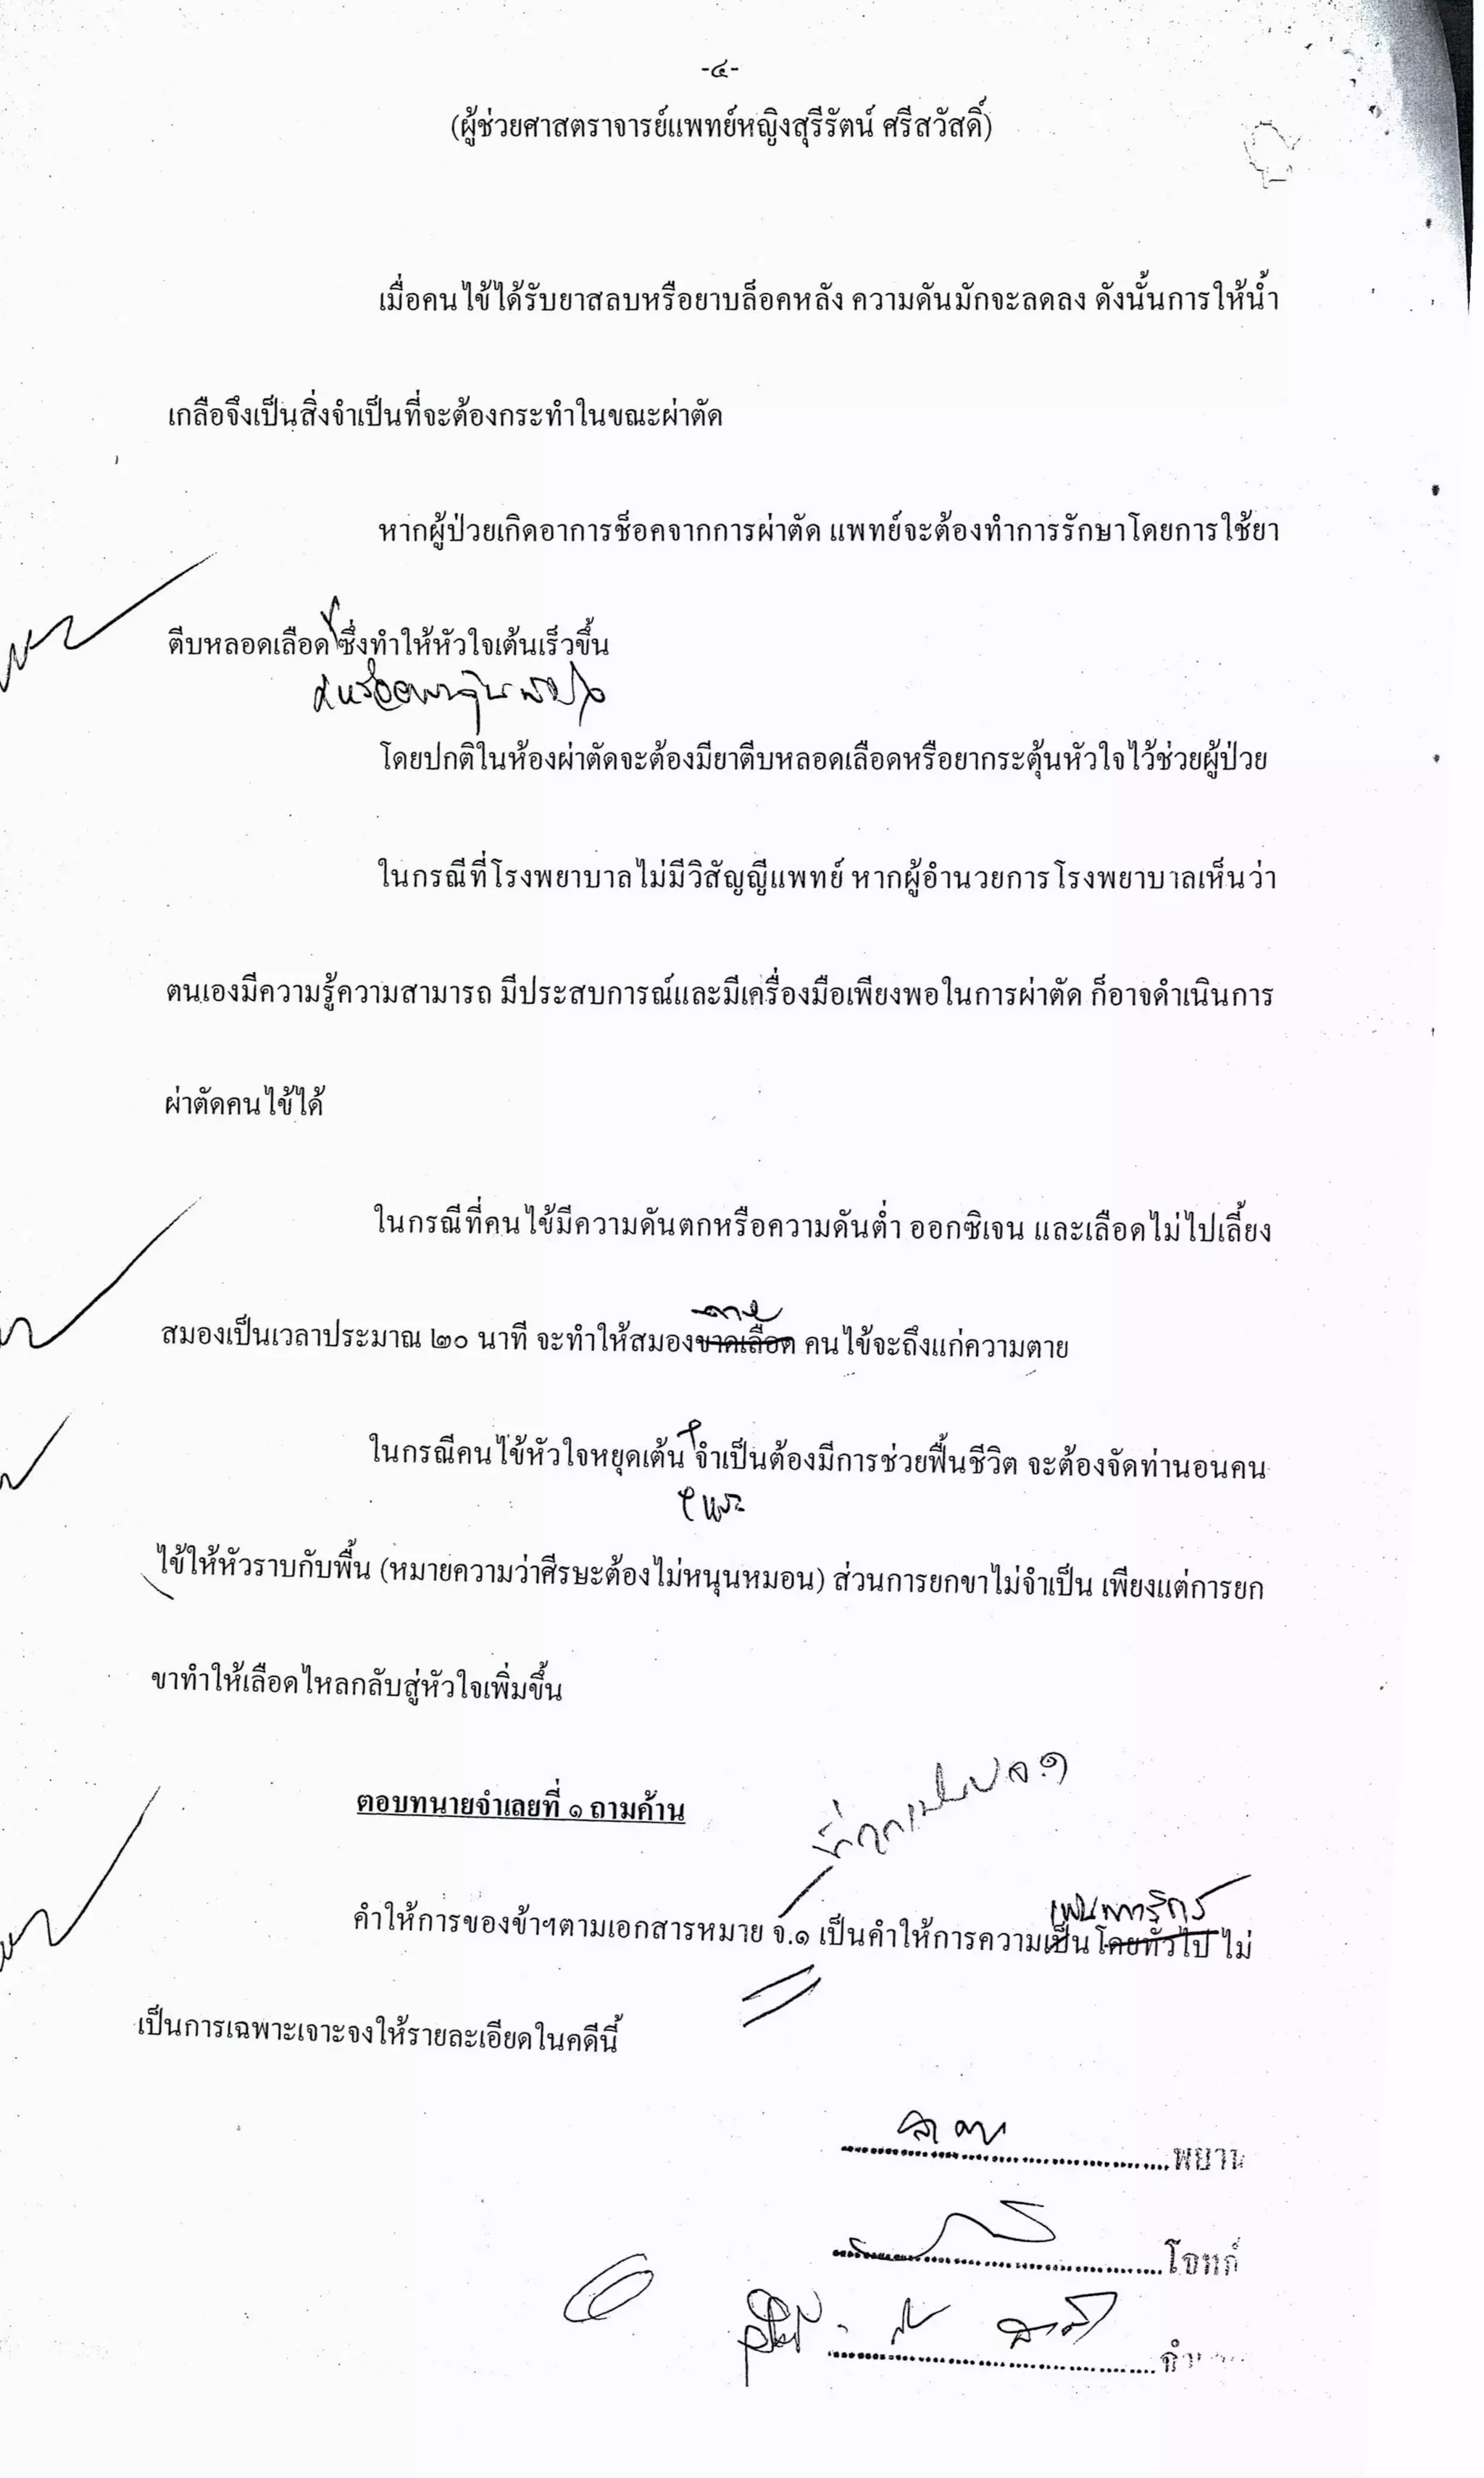 -๔-
(ผู้ช่วยศาสตราจารย์แพทย์หญิงสุรีรัตน์ ศรีสวัสดิ์)
เมื่อคนไข้ได้รับยาสลบหรือยาบล็อคหลัง ความดันมักจะลดลง ดังนั้นการให้น้ำ
เกลือจึงเป็นสิ่งจำเป็นที่จะต้องกระทำในขณะผ่าตัด
หากผู้ป่วยเกิดอาการช็อคจากการผ่าตัด แพทย์จะต้องทำการรักษาโดยการใช้ยา
ตีบหลอดเลือด ซึ่งทำให้หัวใจเต้นเร็วขึ้น
โดยปกติในห้องผ่าตัดจะต้องมียาตีบหลอดเลือดหรือยากระตุ้นหัวใจไว้ช่วยผู้ป่วย
ในกรณีที่โรงพยาบาลไม่มีวิสัญญีแพทย์ หากผู้อำนวยการโรงพยาบาลเห็นว่า
ตนเองมีความรู้ความสามารถ มีประสบการณ์และมีเครื่องมือเพียงพอในการผ่าตัด ก็อาจดำเนินการ
ผ่าตัดคนไข้ได้
ในกรณีที่คนไข้มีความดันตกหรือความดันต่ำ ออกซิเจน และเลือดไม่ไปเลี้ยง
ตาย
สมองเป็นเวลาประมาณ ๒๐ นาที จะทำให้สมองขาดเลือด คนไข้จะถึงแก่ความตาย
ในกรณีคนไข้หัวใจหยุดเต้น จำเป็นต้องมีการช่วยฟื้นชีวิต จะต้องจัดท่านอนคน
ไข้ให้หัวราบกับพื้น (หมายความว่าศีรษะต้องไม่หนุนหมอน) ส่วนการยกขาไม่จำเป็น เพียงแต่การยก
ขาทำให้เลือดไหลกลับสู่หัวใจเพิ่มขึ้น
ตอบทนายจำเลยที่ ๑ ถามค้าน
คำให้การของข้าฯตามเอกสารหมาย จ.๑ เป็นคำให้การความเป็นโดยทั่วไป ไม่
เป็นการเฉพาะเจาะจงให้รายละเอียดในคดีนี้
พยาน
โจทก์